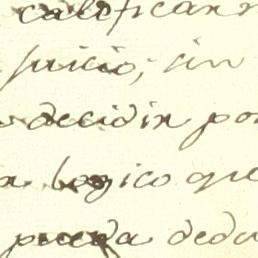 calificar
juicio; sin
decidir por
logico que
pueda dedu